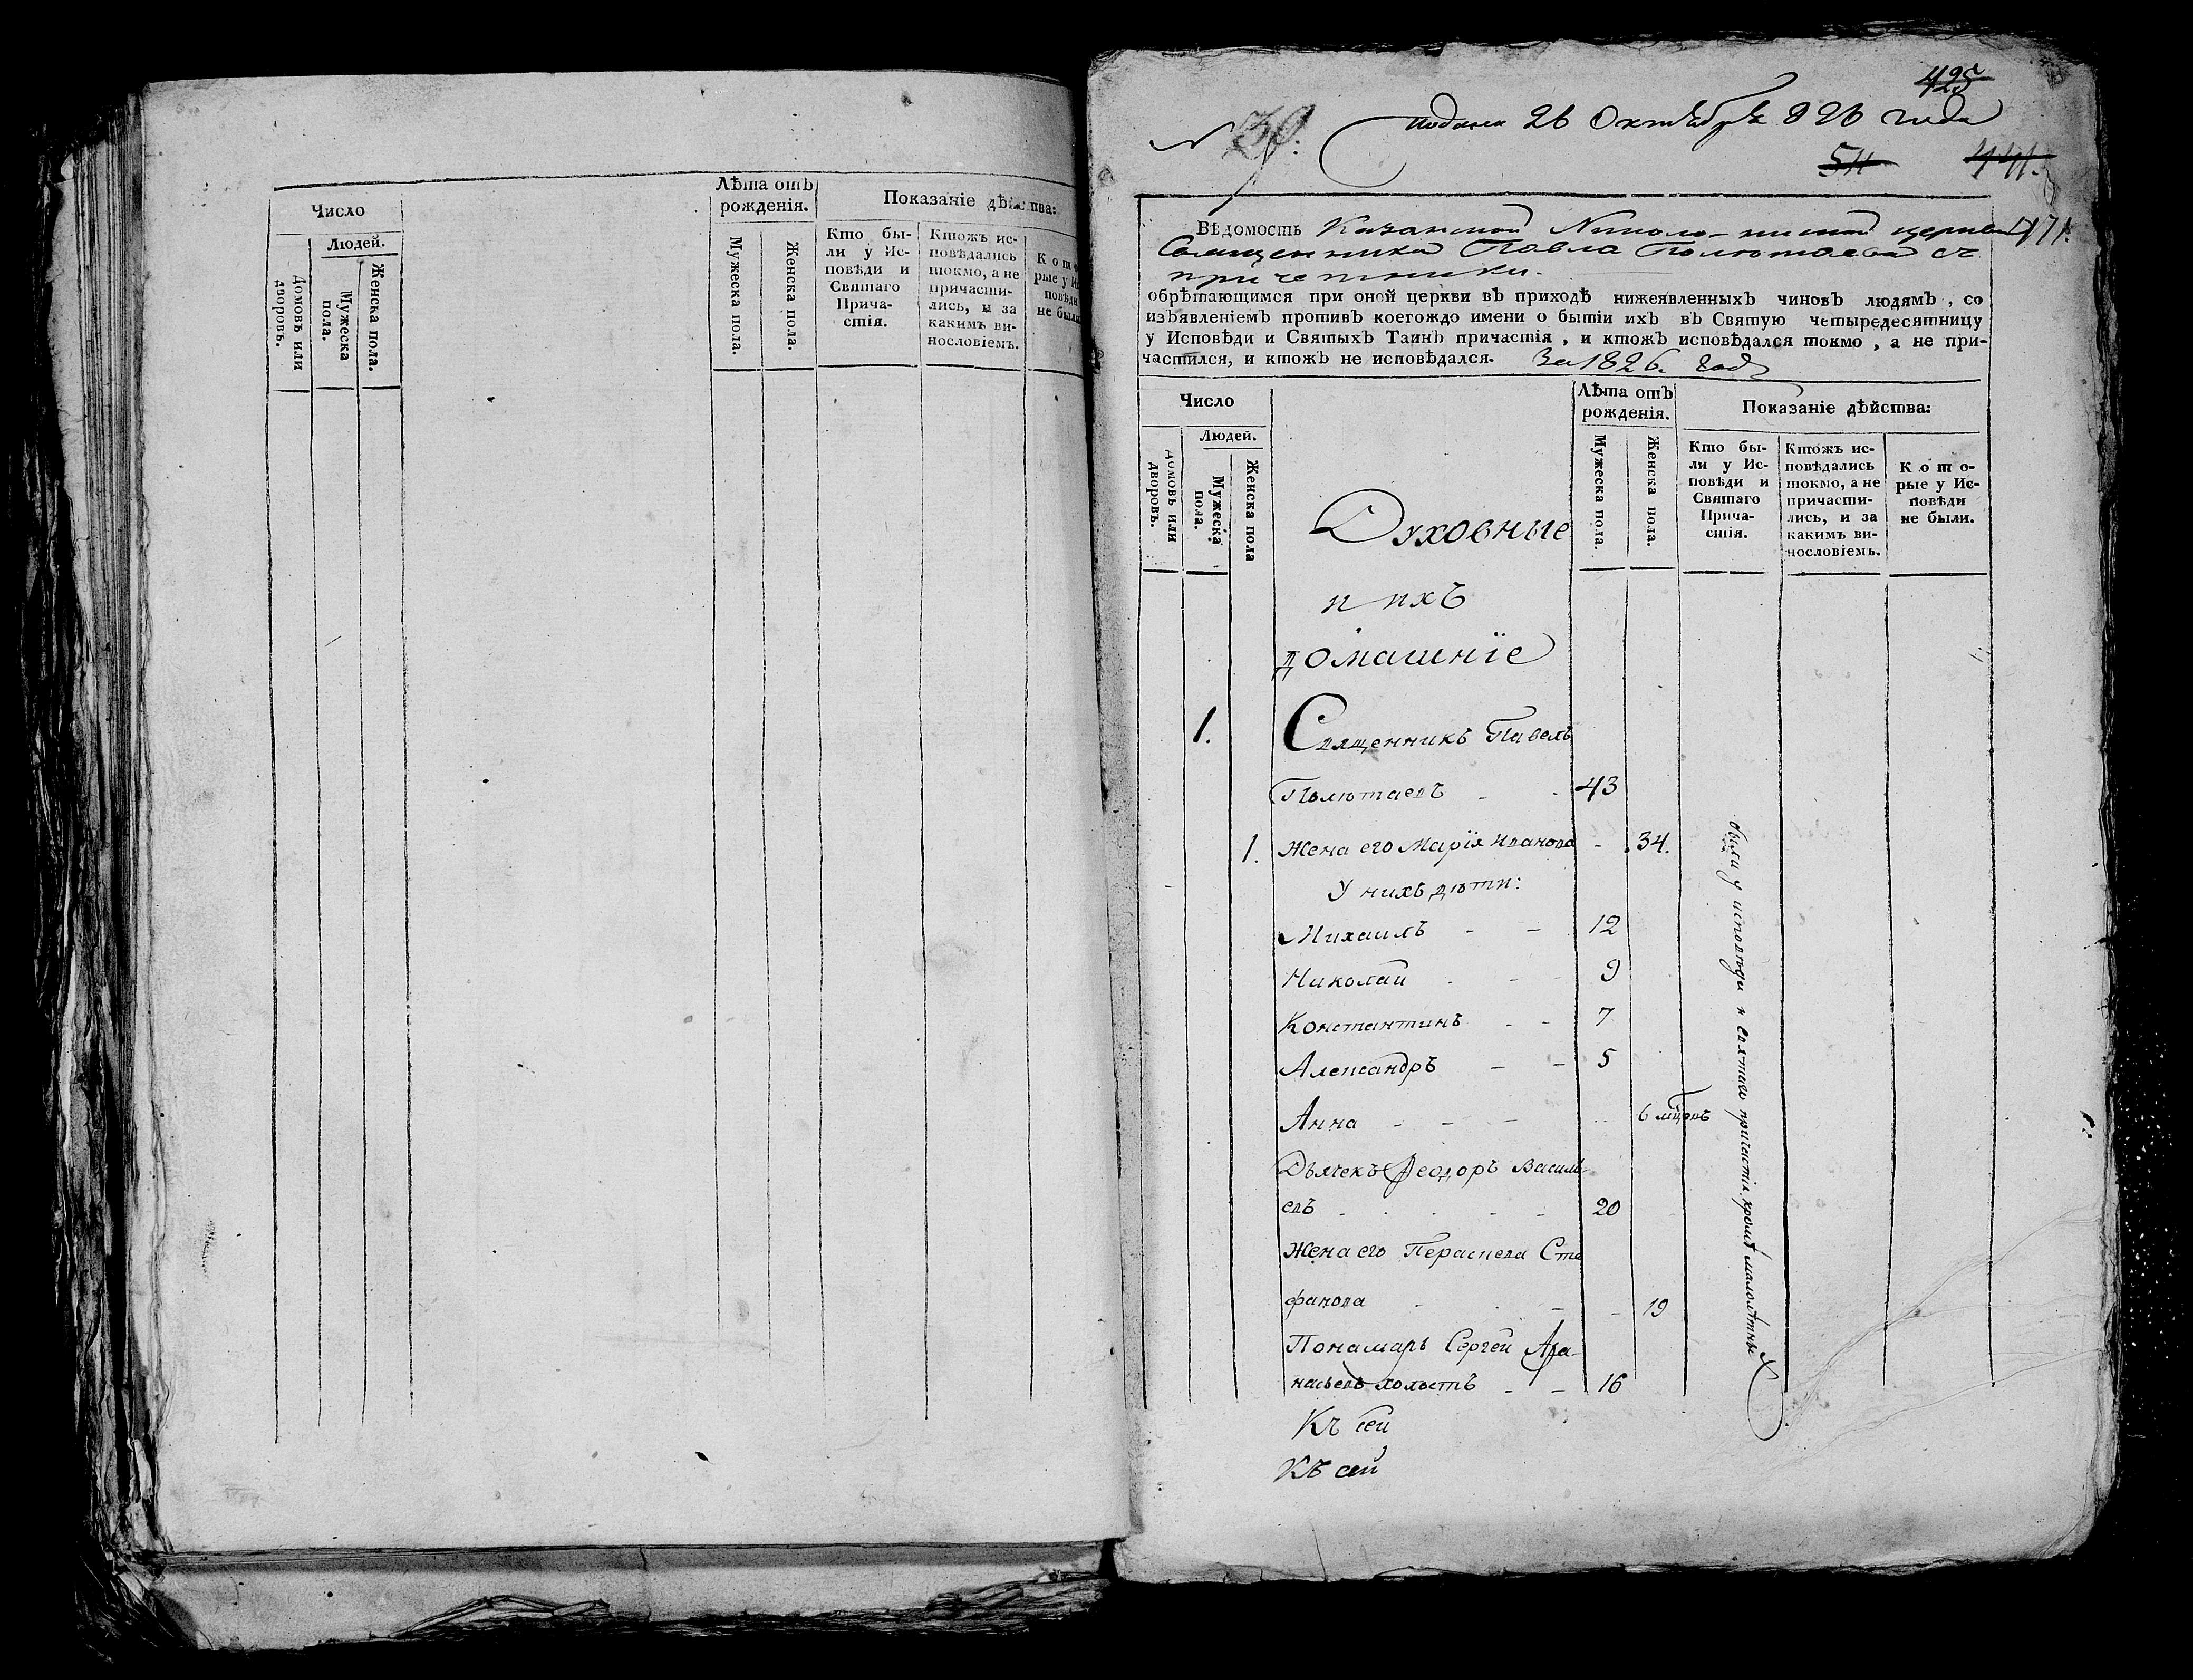 Число
Людей.
Домовъ или дворовъ.
Мужеска пола.
Женска пола.
Лѣта отъ
рожденія.
Мужеска пола.
Женска пола.
Показаніе
Кто бы-
ли у Ис-
повѣди и
Святаго
Прича-
стія.
Ктожъ ис-
повѣдались
токмо, а не
причасти-
лись, и за
какимъ ви-
нословіемъ.
425
подана 26 Октября 826 года
54
441.
471.
Вѣдомость Казанской церкви
Священника Павла Полютаева съ
причетники.
обрѣтающимся при оной церкви въ приходѣ нижеявленныхъ чиновъ людямъ, со
изъявленіемъ противъ коегождо имени о бытіи ихъ въ Святую четыредесятницу
у Исповѣди и Святыхъ Таинъ причастія, и ктожъ исповѣдался токмо, а не при-
частился, и ктожъ не исповѣдался. За 1826. годъ
Число
Людей.
Домовъ или дворовъ.
Мужеска пола.
Женска пола
Лѣта отъ
рожденія.
Мужеска пола.
Женска пола.
Показаніе дѣйства:
Кто бы-
ли у Ис-
повѣди и
Святаго
Прича-
стія.
Ктожъ ис-
повѣдались
токмо, а не
причасти-
лись, и за
какимъ ви-
нословіемъ.
Кото-
рые у Ис-
повѣди
не были.
Духовные
и ихъ
домашніе
1. Священникъ Павелъ
Полютаевъ - - 43
1. Жена его Марія Иванова - 34.
У нихъ дѣти:
Михаилъ - - 12
Николай - - 9
Константинъ - - 7
Александръ - - 5
Анна - - - 6 мцовъ
Дьячекъ Ѳеодоръ Василь-
евъ - - 20
Жена его Параскева Сте
фанова - - 19
Понамарь Сергей Афа-
насьевъ холостъ - - 16
были у исповѣди и святаго причастія кромѣ малолѣтныхъ
Къ сей
Къ сей